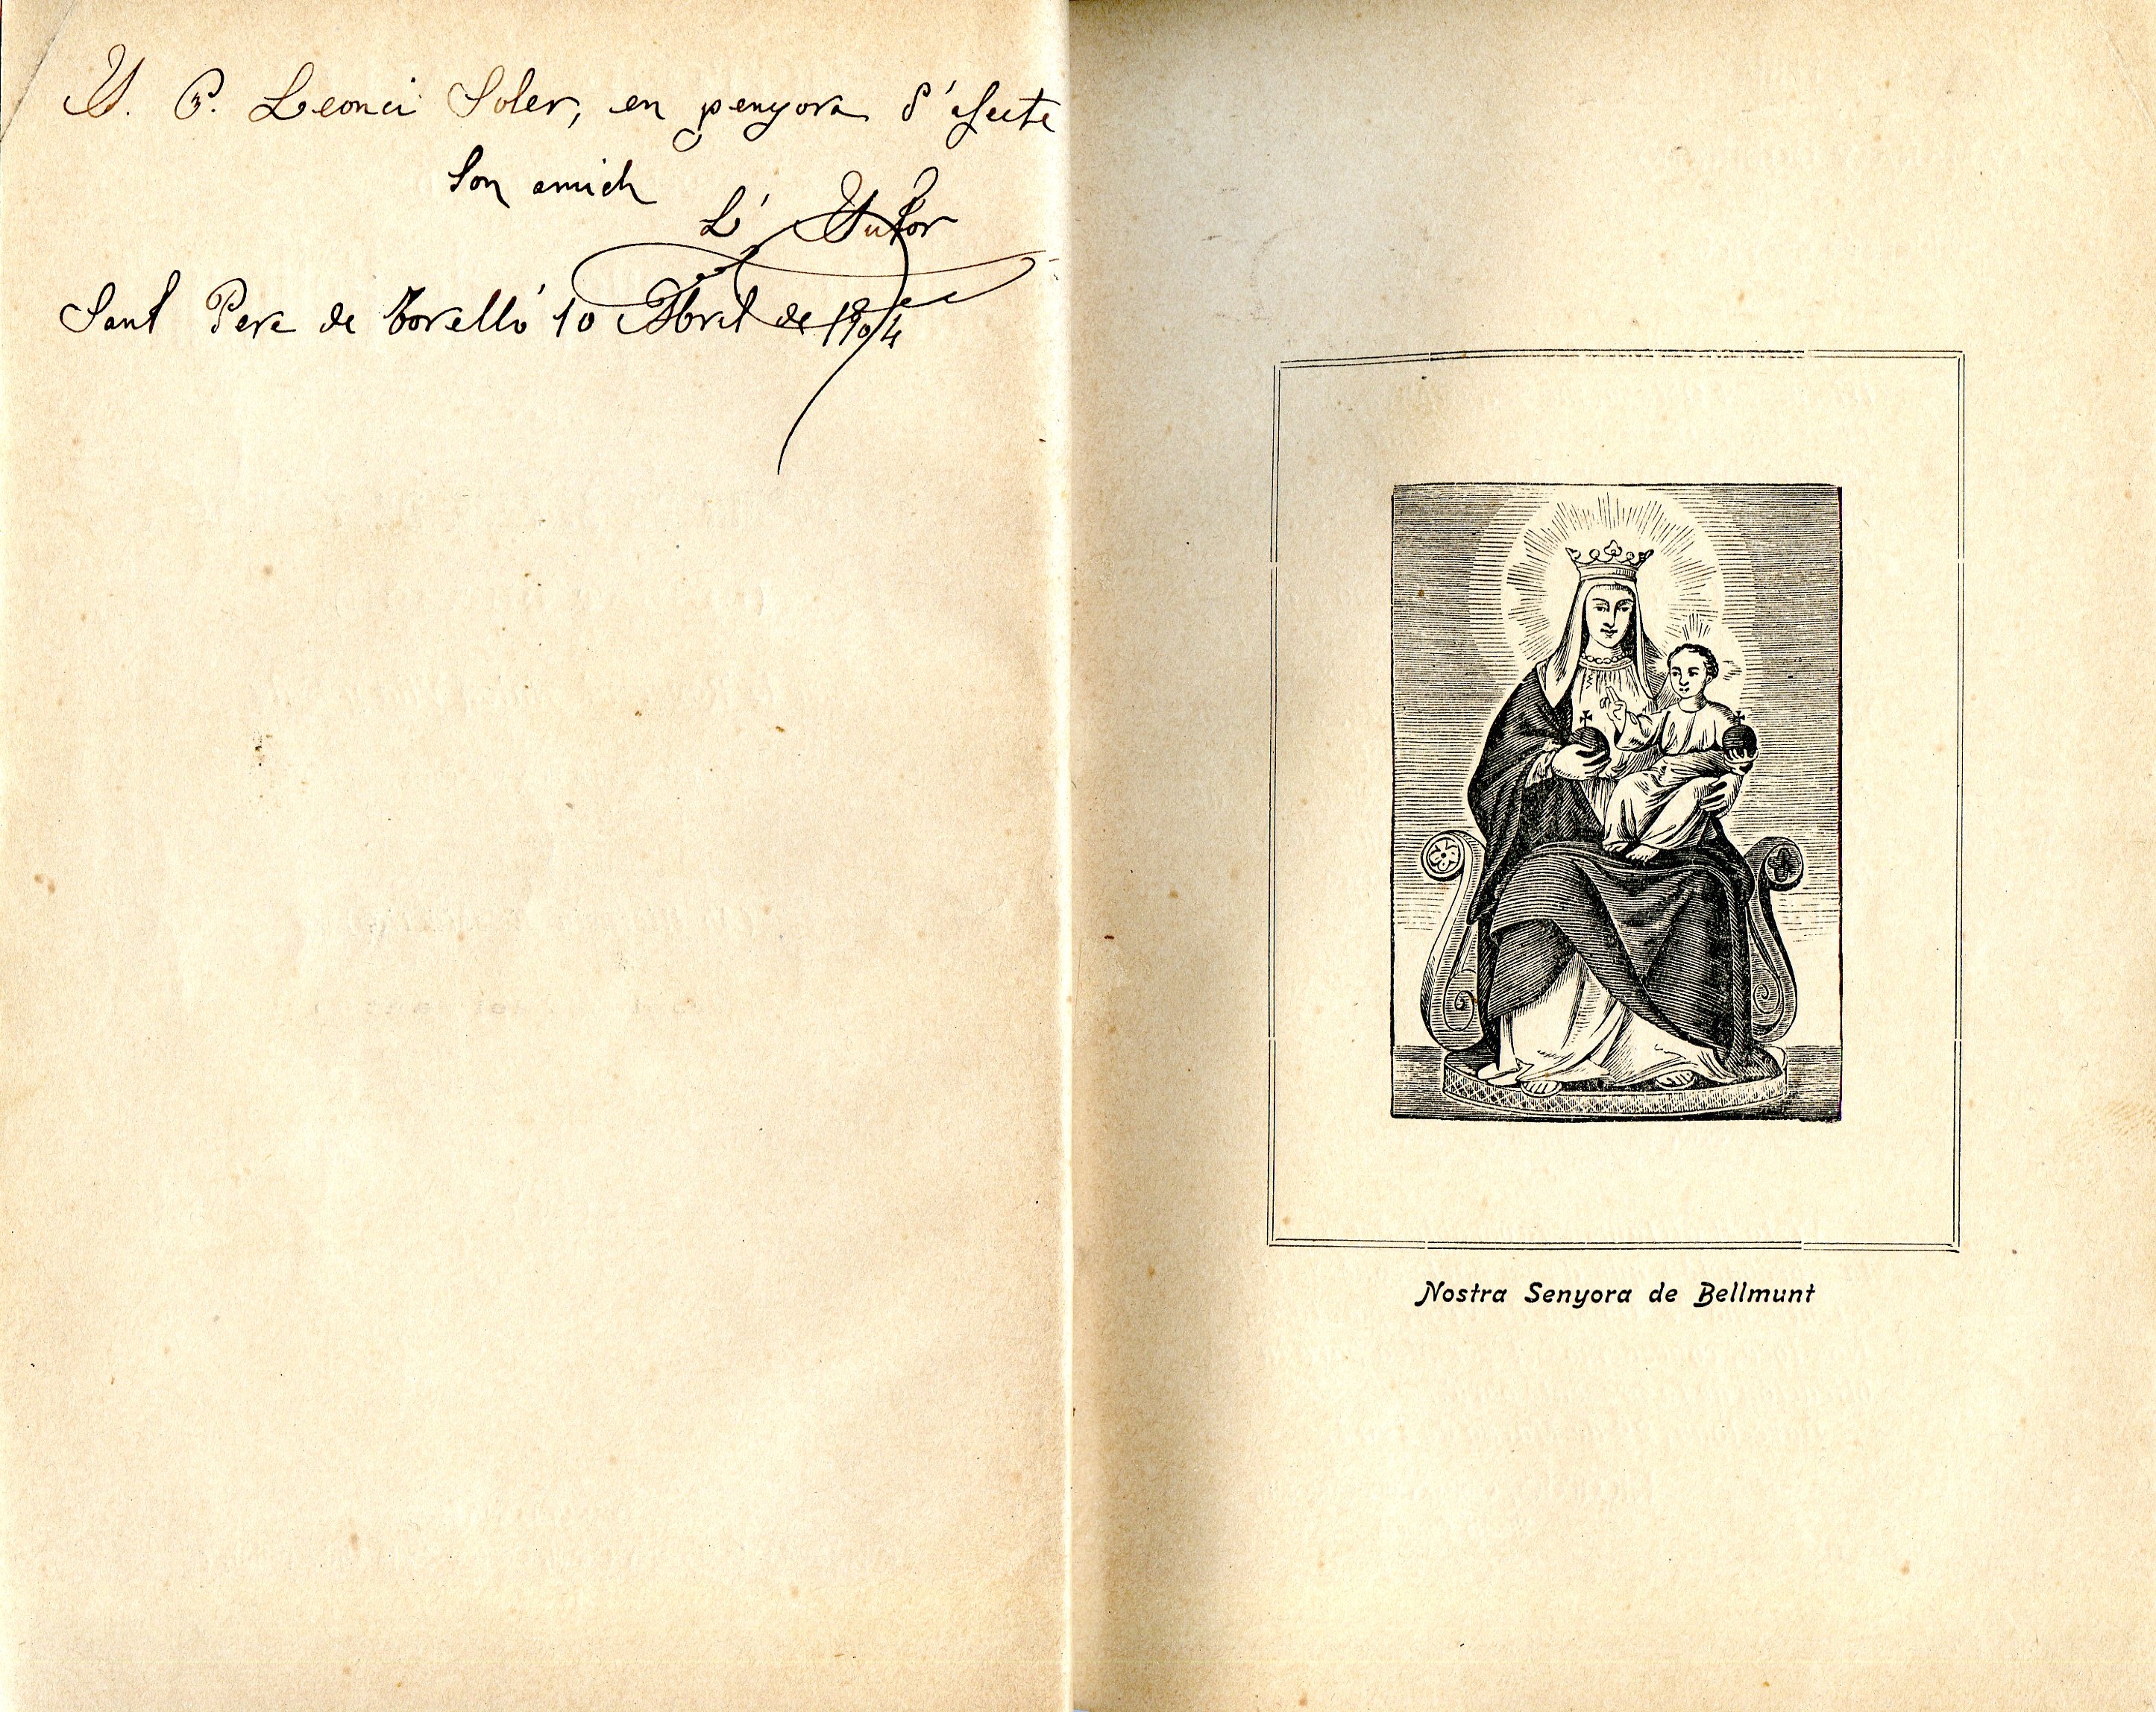 A. P. Leonci Soler, en penyora d'afecte
Son amich
L' Autor
Sant Pere de Torelló 10 Abril de 1904
Nostra Senyora de Bellmunt